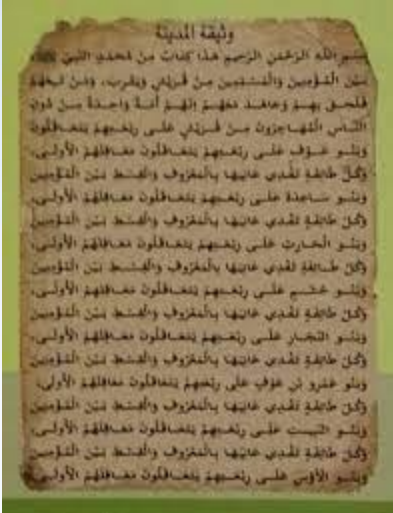 وثيقة المدينة
بسم الله الرحمن الرحيم هذا كتاب من محمد النبي ﷺ
بين المؤمنين والمسلمين من قريش ويثرب، ومن تبعهم
فلحق بهم وجاهد معهم إنهم أمة واحدة من دون
الناس المهاجرون من قريش على ربعتهم يتعاقلون
وبنو عوف على ربعتهم يتعاقلون معاقلهم الأولى،
وكل طائفة تفدي عانيها بالمعروف والقسط بين المؤمنين
وبنو ساعدة على ربعتهم يتعاقلون معاقلهم الأولى،
وكل طائفة تفدي عانيها بالمعروف والقسط بين المؤمنين
وبنو الحارث على ربعتهم يتعاقلون معاقلهم الأولى،
وكل طائفة تفدي عانيها بالمعروف والقسط بين المؤمنين
وبنو جشم على ربعتهم يتعاقلون معاقلهم الأولى،
وكل طائفة تفدي عانيها بالمعروف والقسط بين المؤمنين
وبنو النجار على ربعتهم يتعاقلون معاقلهم الأولى،
وكل طائفة تفدي عانيها بالمعروف والقسط بين المؤمنين
وبنو عمرو بن عوف على ربعتهم يتعاقلون معاقلهم الأولى،
وكل طائفة تفدي عانيها بالمعروف والقسط بين المؤمنين
وبنو النبيت على ربعتهم يتعاقلون معاقلهم الأولى،
وكل طائفة تفدي عانيها بالمعروف والقسط بين المؤمنين
وبنو الأوس على ربعتهم يتعاقلون معاقلهم الأولى،